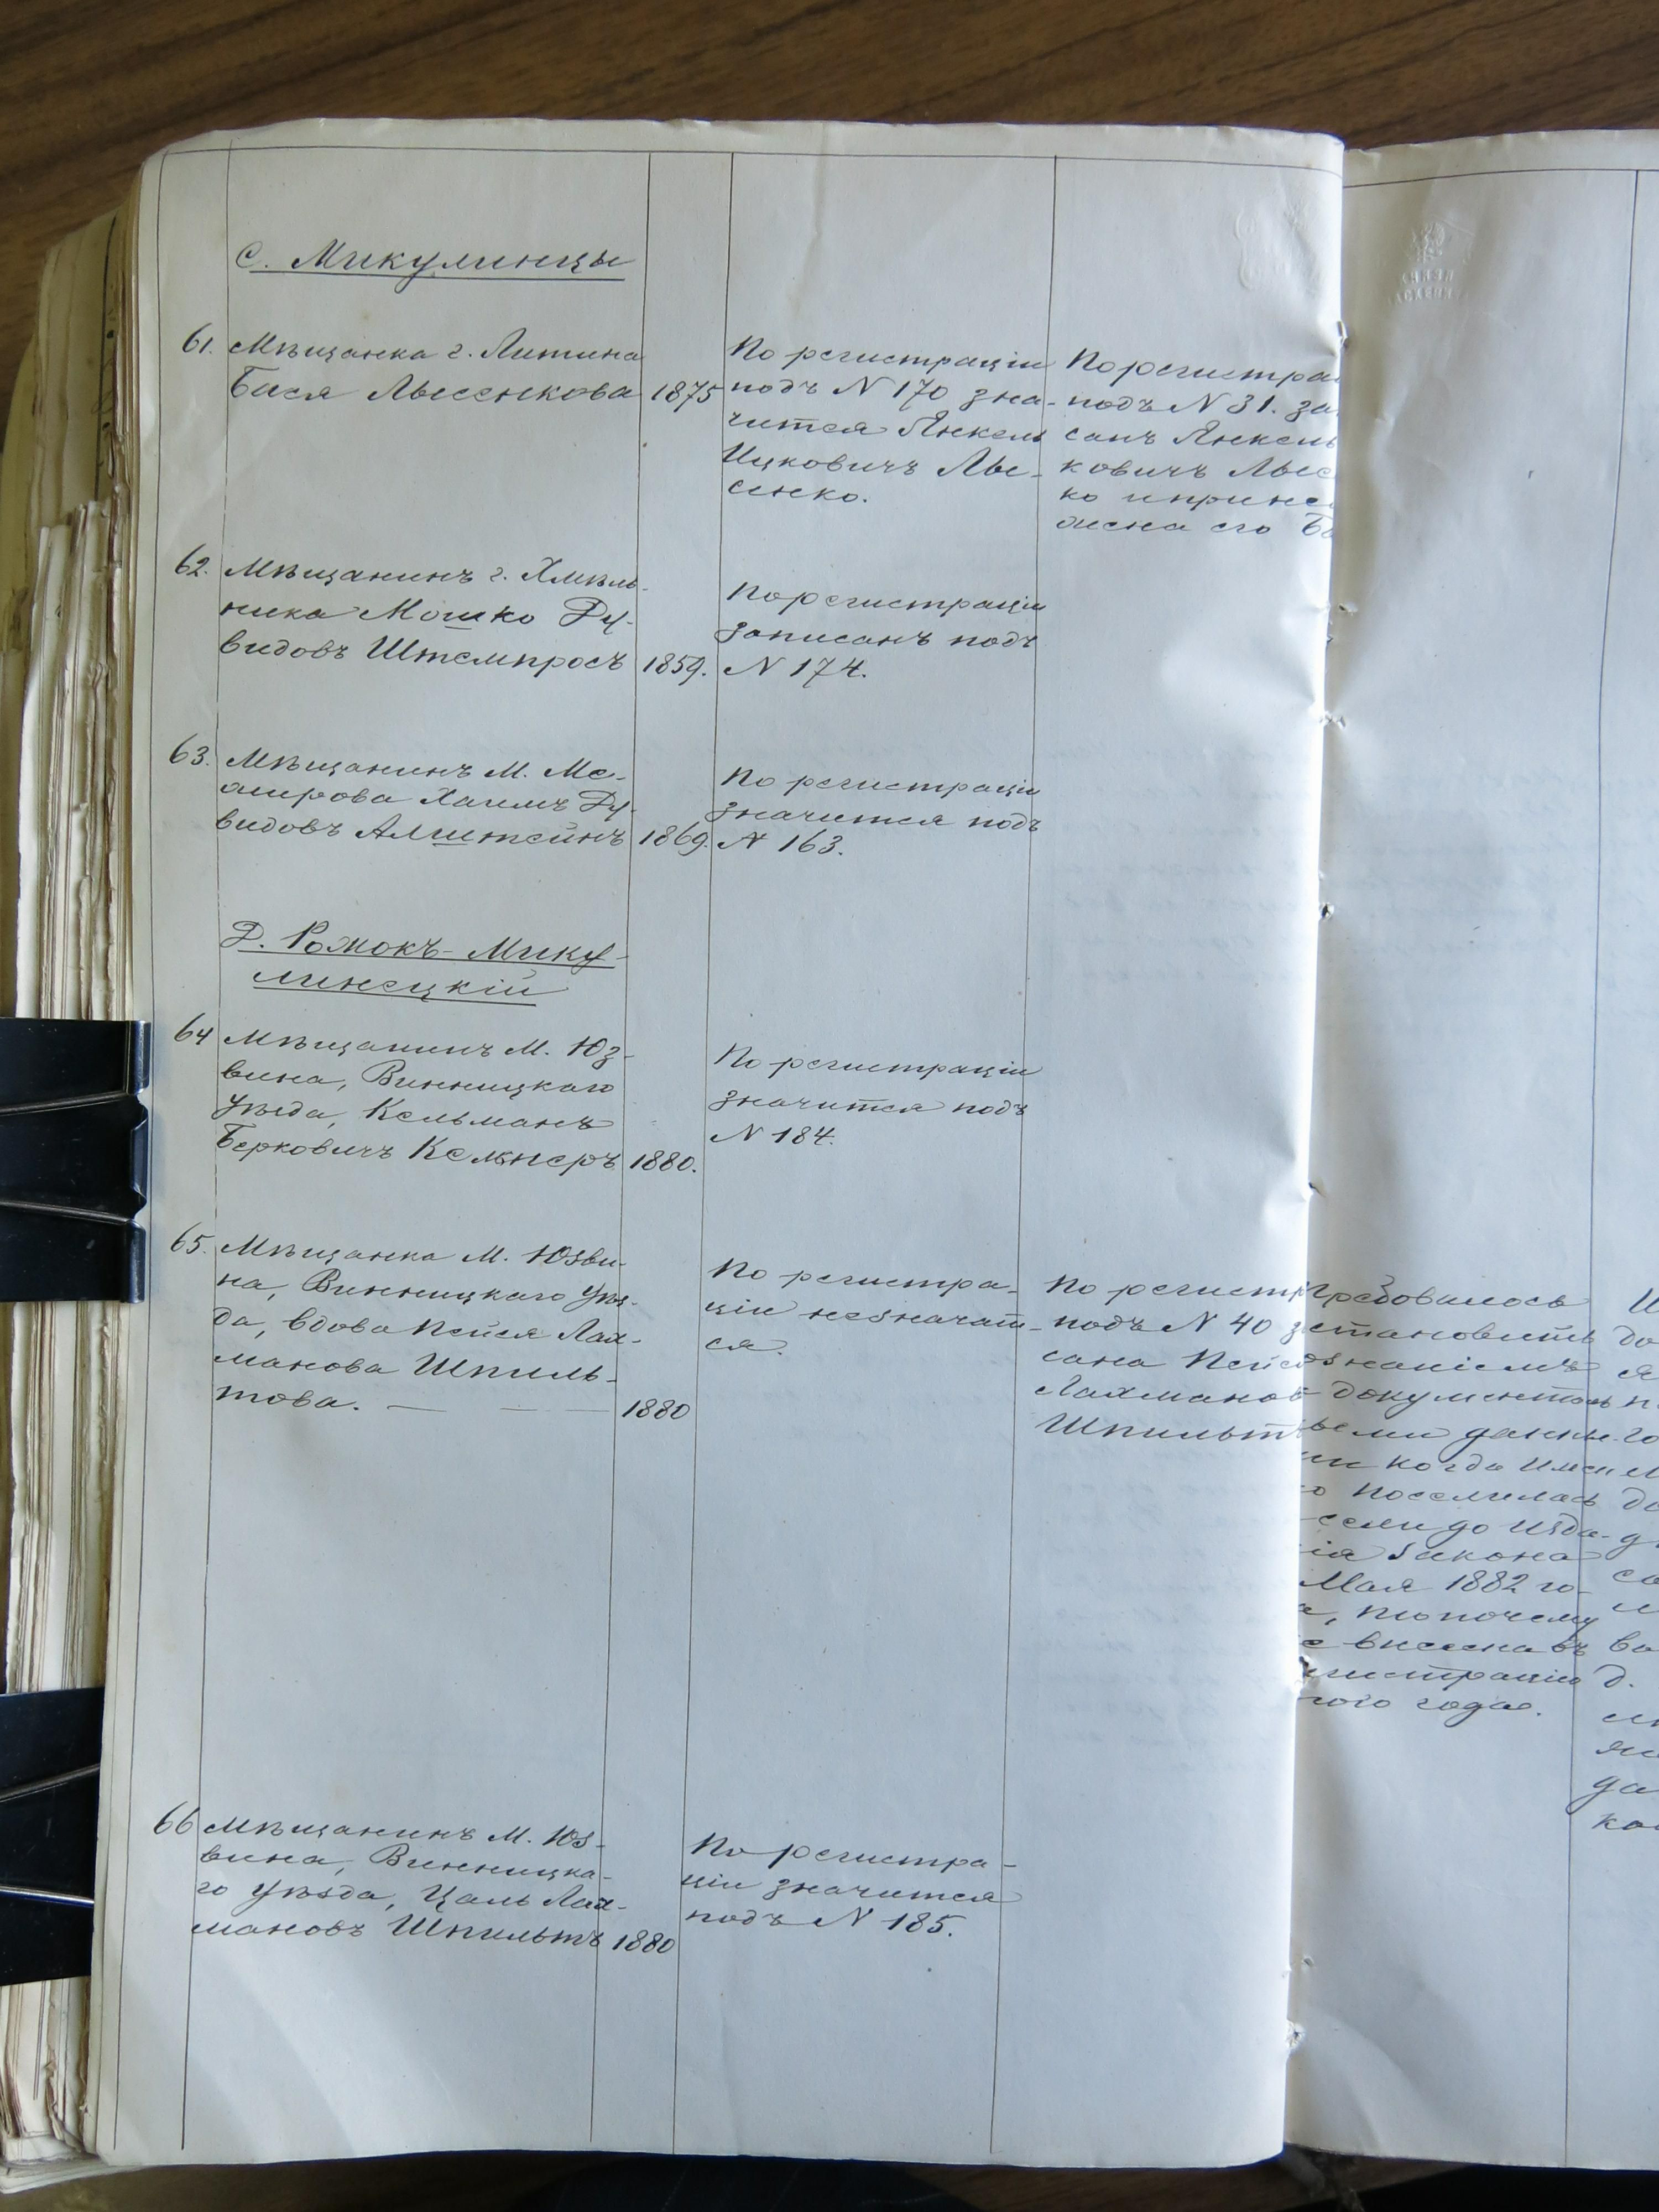 С. Микулинцы
61. Мѣщанка г. Литина
Бася Лысенкова 1875
По регистраціи
подъ N 170 зна-
чится Янкель
Ицковичъ Лы-
сенко.
По регистра
подъ N 31. за
санъ Янкель
ковичъ Лыс
ко
его
62. Мѣщанинъ г. Хмѣль-
ника Мошко Ду-
видовъ Штемпросъ 1859.
По регистраціи
записанъ подъ
N 174.
63. Мѣщанинъ М. Ме-
жирова Хаимъ Ду-
видовъ Алштейнъ 1869.
По регистраціи
значится подъ
N 163.
Д. Ромокъ-Мику-
линецкій
64 Мѣщанинъ М. Юз-
вина, Винницкаго
уѣзда, Кельманъ
Берковичъ Кельнеръ 1880.
По регистраціи
значится подъ
N 184.
65. Мѣщанка М. Юзви-
на, Винницкаго уѣз-
да, вдова Пейся Лах-
манова Шпиль-
това. — — — 1880
По регистра-
ціи незначит-
ся.
По регистр
подъ N 40 з
сана Пейс
Лахманов
Шпильт
требовалось
становить
знаніемъ
документом
ми данны-
и когда имен
о поселилась
селидо изда-
ія закона
Мая 1882 го-
а, почему
е внесена въ
гистрацію
того года.
66 Мѣщанинъ М. Юз-
вина, Винницка-
го уѣзда, Цаль Лах-
мановъ Шпильтъ 1880
По регистра-
ціи значится
подъ N 185.
КНЯЗЯ